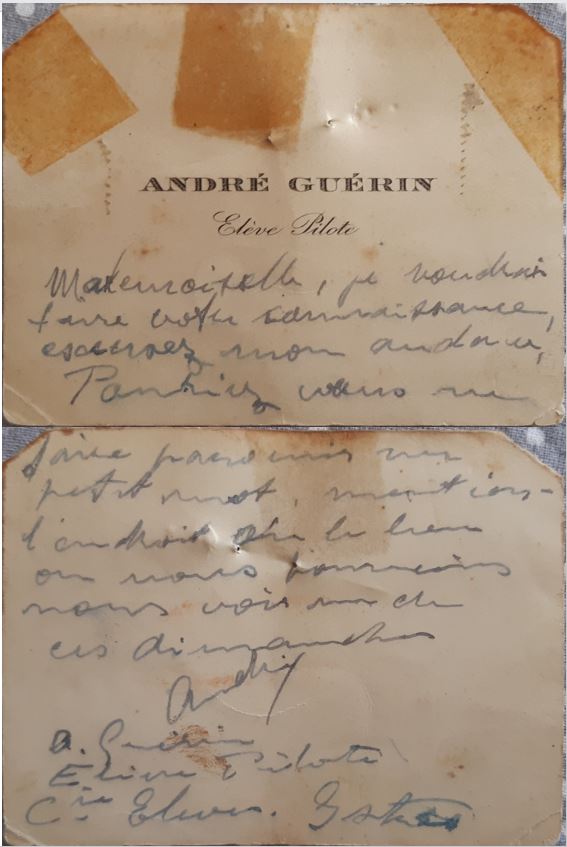 ANDRÉ GUÉRIN
Elève Pilote
Mademoiselle, je voudrais
faire votre connaissance,
excusez mon audace,
Pourriez vous me
faire parvenir un
petit mot, mention-
l'endroit où le lieu
où nous pourrions
nous voir un de
ces dimanches
André
A. Guérin
Elève Pilote
Cie Elèves. Istres